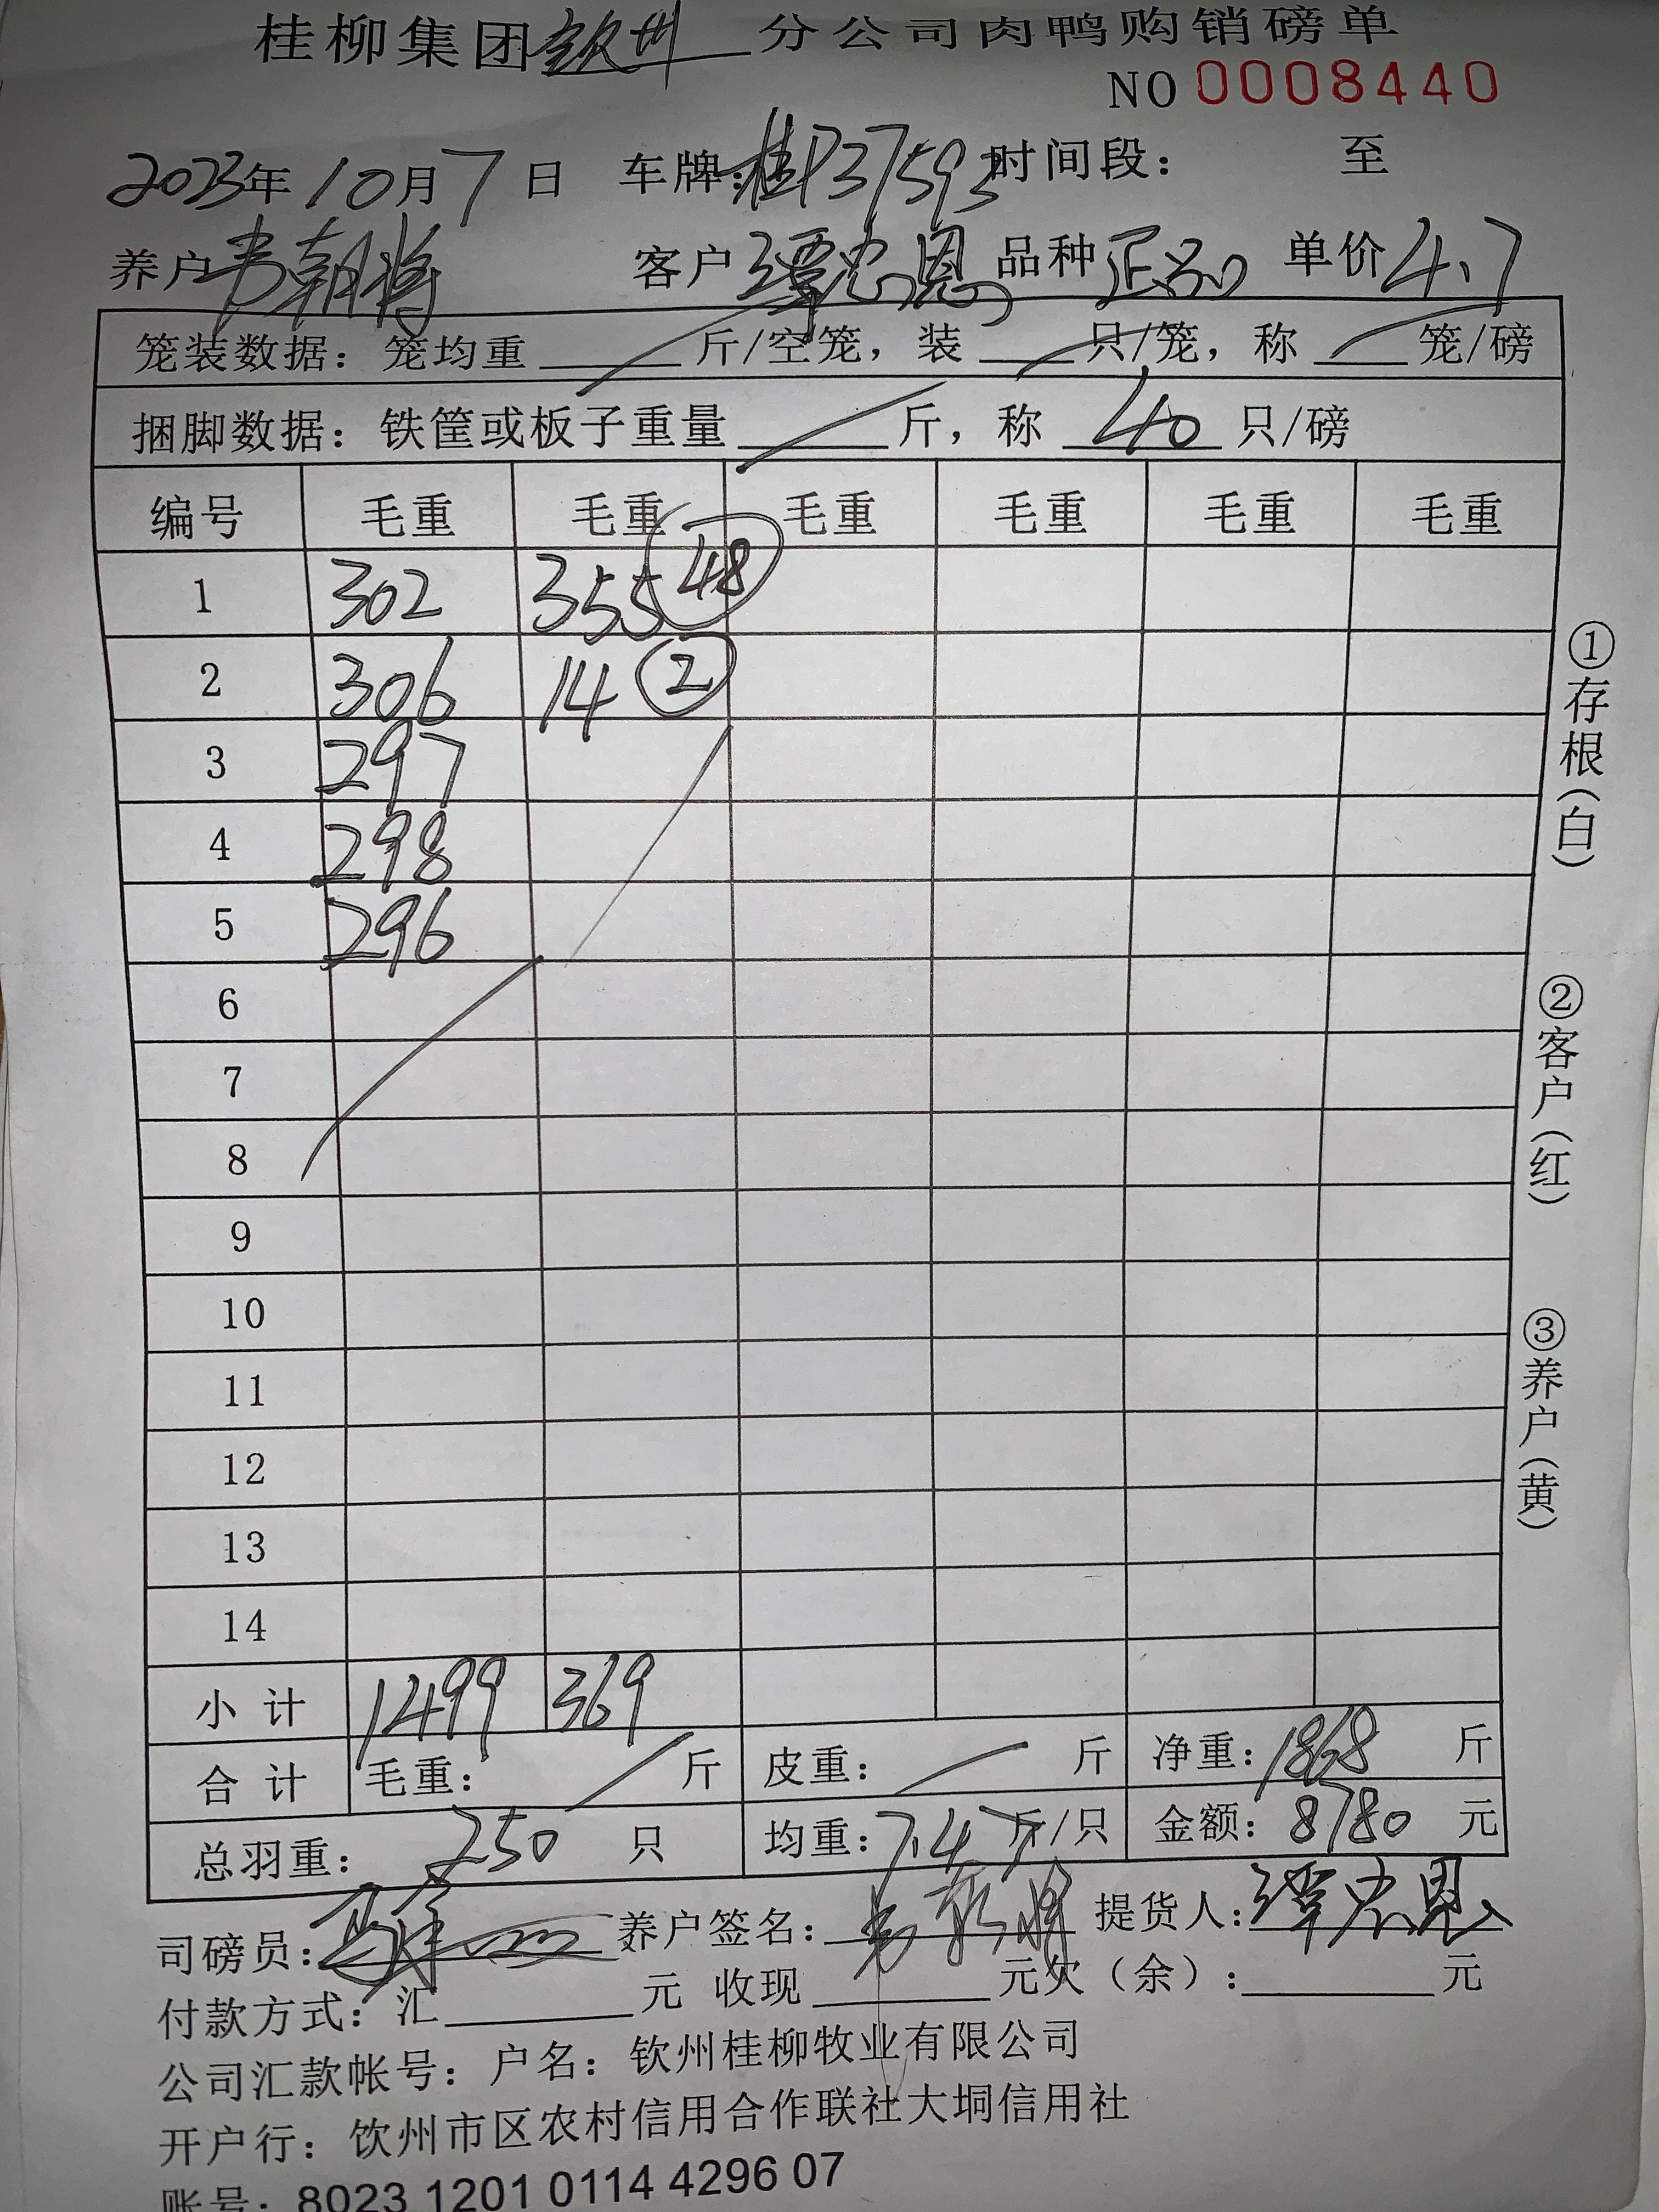 桂柳集团钦州分公司肉鸭购销磅单
NO 0008440
2023年10月7日 车牌:桂P37593 时间段: 至
养户韦朝将 客户谭忠恩 品种正品 单价4.7
笼装数据: 笼均重 斤/空笼, 装 只/笼, 称 笼/磅
捆脚数据: 铁筐或板子重量 斤, 称 40 只/磅
编号 毛重 毛重 毛重 毛重 毛重 毛重
1 302 355 48
2 306 14 2
3 297
4 298
5 296
6
7
8
9
10
11
12
13
14
小计 1499 369
合计 毛重: 斤 皮重: 斤 净重: 1868 斤
总羽重: 250 只 均重: 7.47 斤/只 金额: 8780 元
司磅员: 养户签名: 韦朝将 提货人: 谭忠恩
付款方式: 汇 元 收现 元欠（余）: 元
公司汇款帐号: 户名: 钦州桂柳牧业有限公司
开户行: 钦州市区农村信用合作联社大垌信用社
账号: 8023 1201 0114 4296 07
①存根（白）
②客户（红）
③养户（黄）